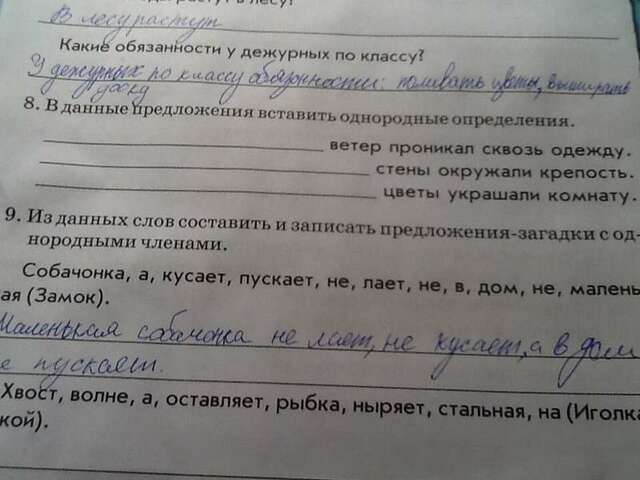 растут в лесу?
В лесу растут
Какие обязанности у дежурных по классу?
У дежурных по классу обязонности: поливать цветы, вытирать
доску
8. В данные предложения вставить однородные определения.
ветер проникал сквозь одежду.
стены окружали крепость.
цветы украшали комнату.
9. Из данных слов составить и записать предложения-загадки с од-
нородными членами.
Собачонка, а, кусает, пускает, не, лает, не, в, дом, не, малень
ая (Замок).
Маленькая собачонка не лает, не кусает, а в дом
е пускает.
Хвост, волне, а, оставляет, рыбка, ныряет, стальная, на (Иголка
кой).